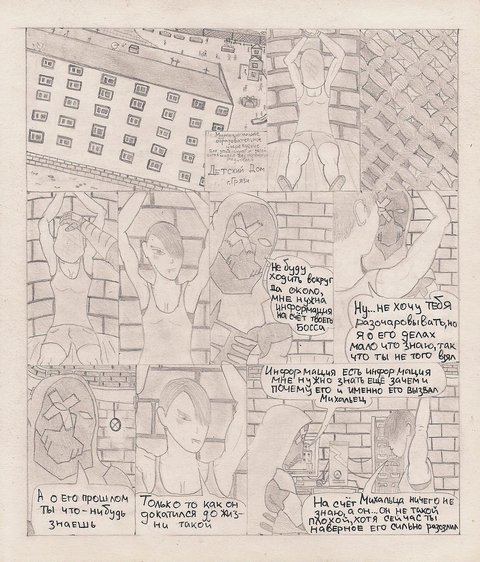 Муниципальное
образовательное
Детский Дом
г. Грязи
Не буду
ходить вокруг
да около,
мне нужна
информация
на счёт твоего
босса
Ну... не хочу тебя
разочаровывать, но
я о его делах
мало что знаю, так
что ты не того взял
А о его прошлом
ты что-нибудь
знаешь
Только то как он
докатился до жиз-
ни такой
Информация есть информация
мне нужно знать ещё зачем и
почему его и именно его вызвал
Михалыец
На счёт Михальца ничего не
знаю, а он... он не такой
плохой, хотя сейчас ты
наверное его сильно разозлил